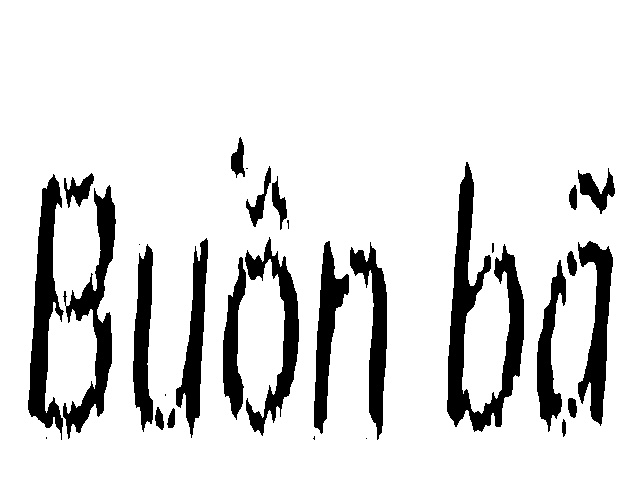 Buồn bã